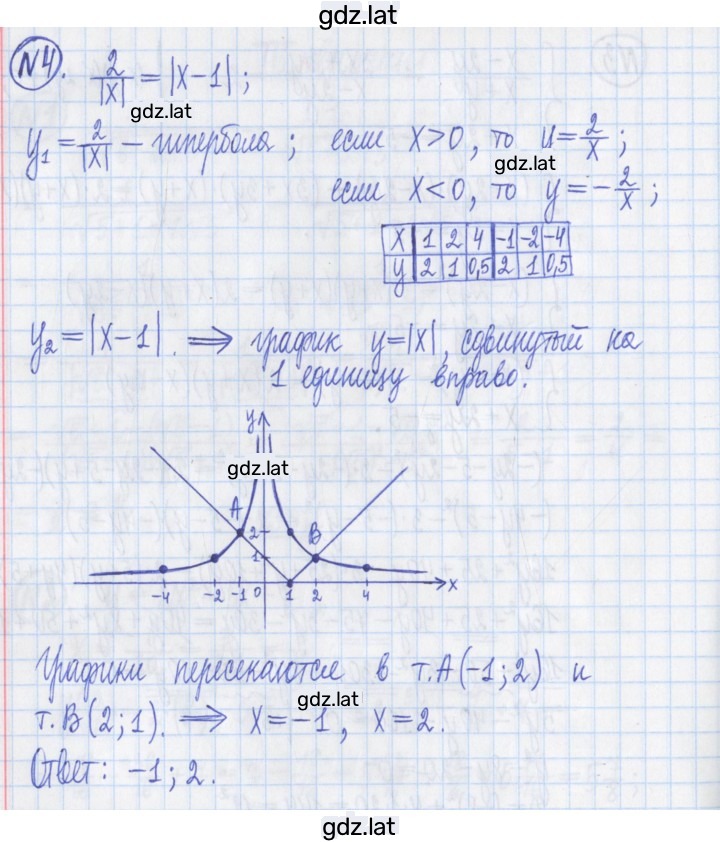 gdz.lat
№4. 2/|x| = |x-1| ;
gdz.lat
y₁ = 2/|x| – гипербола ; если x>0, то y = 2/x ;
gdz.lat
если x<0, то y = -2/x ;
x 1 2 4 -1 -2 -4
y 2 1 0,5 2 1 0,5
y₂ = |x-1|. ⇒ график y=|x|, сдвинутый на
1 единицу вправо.
y
gdz.lat
A
2
B
1
-4 -2 -1 0 1 2 4 x
Графики пересекаются в т.A(-1;2) и
gdz.lat
т.B(2;1). ⇒ x=-1, x=2.
Ответ: -1; 2.
gdz.lat